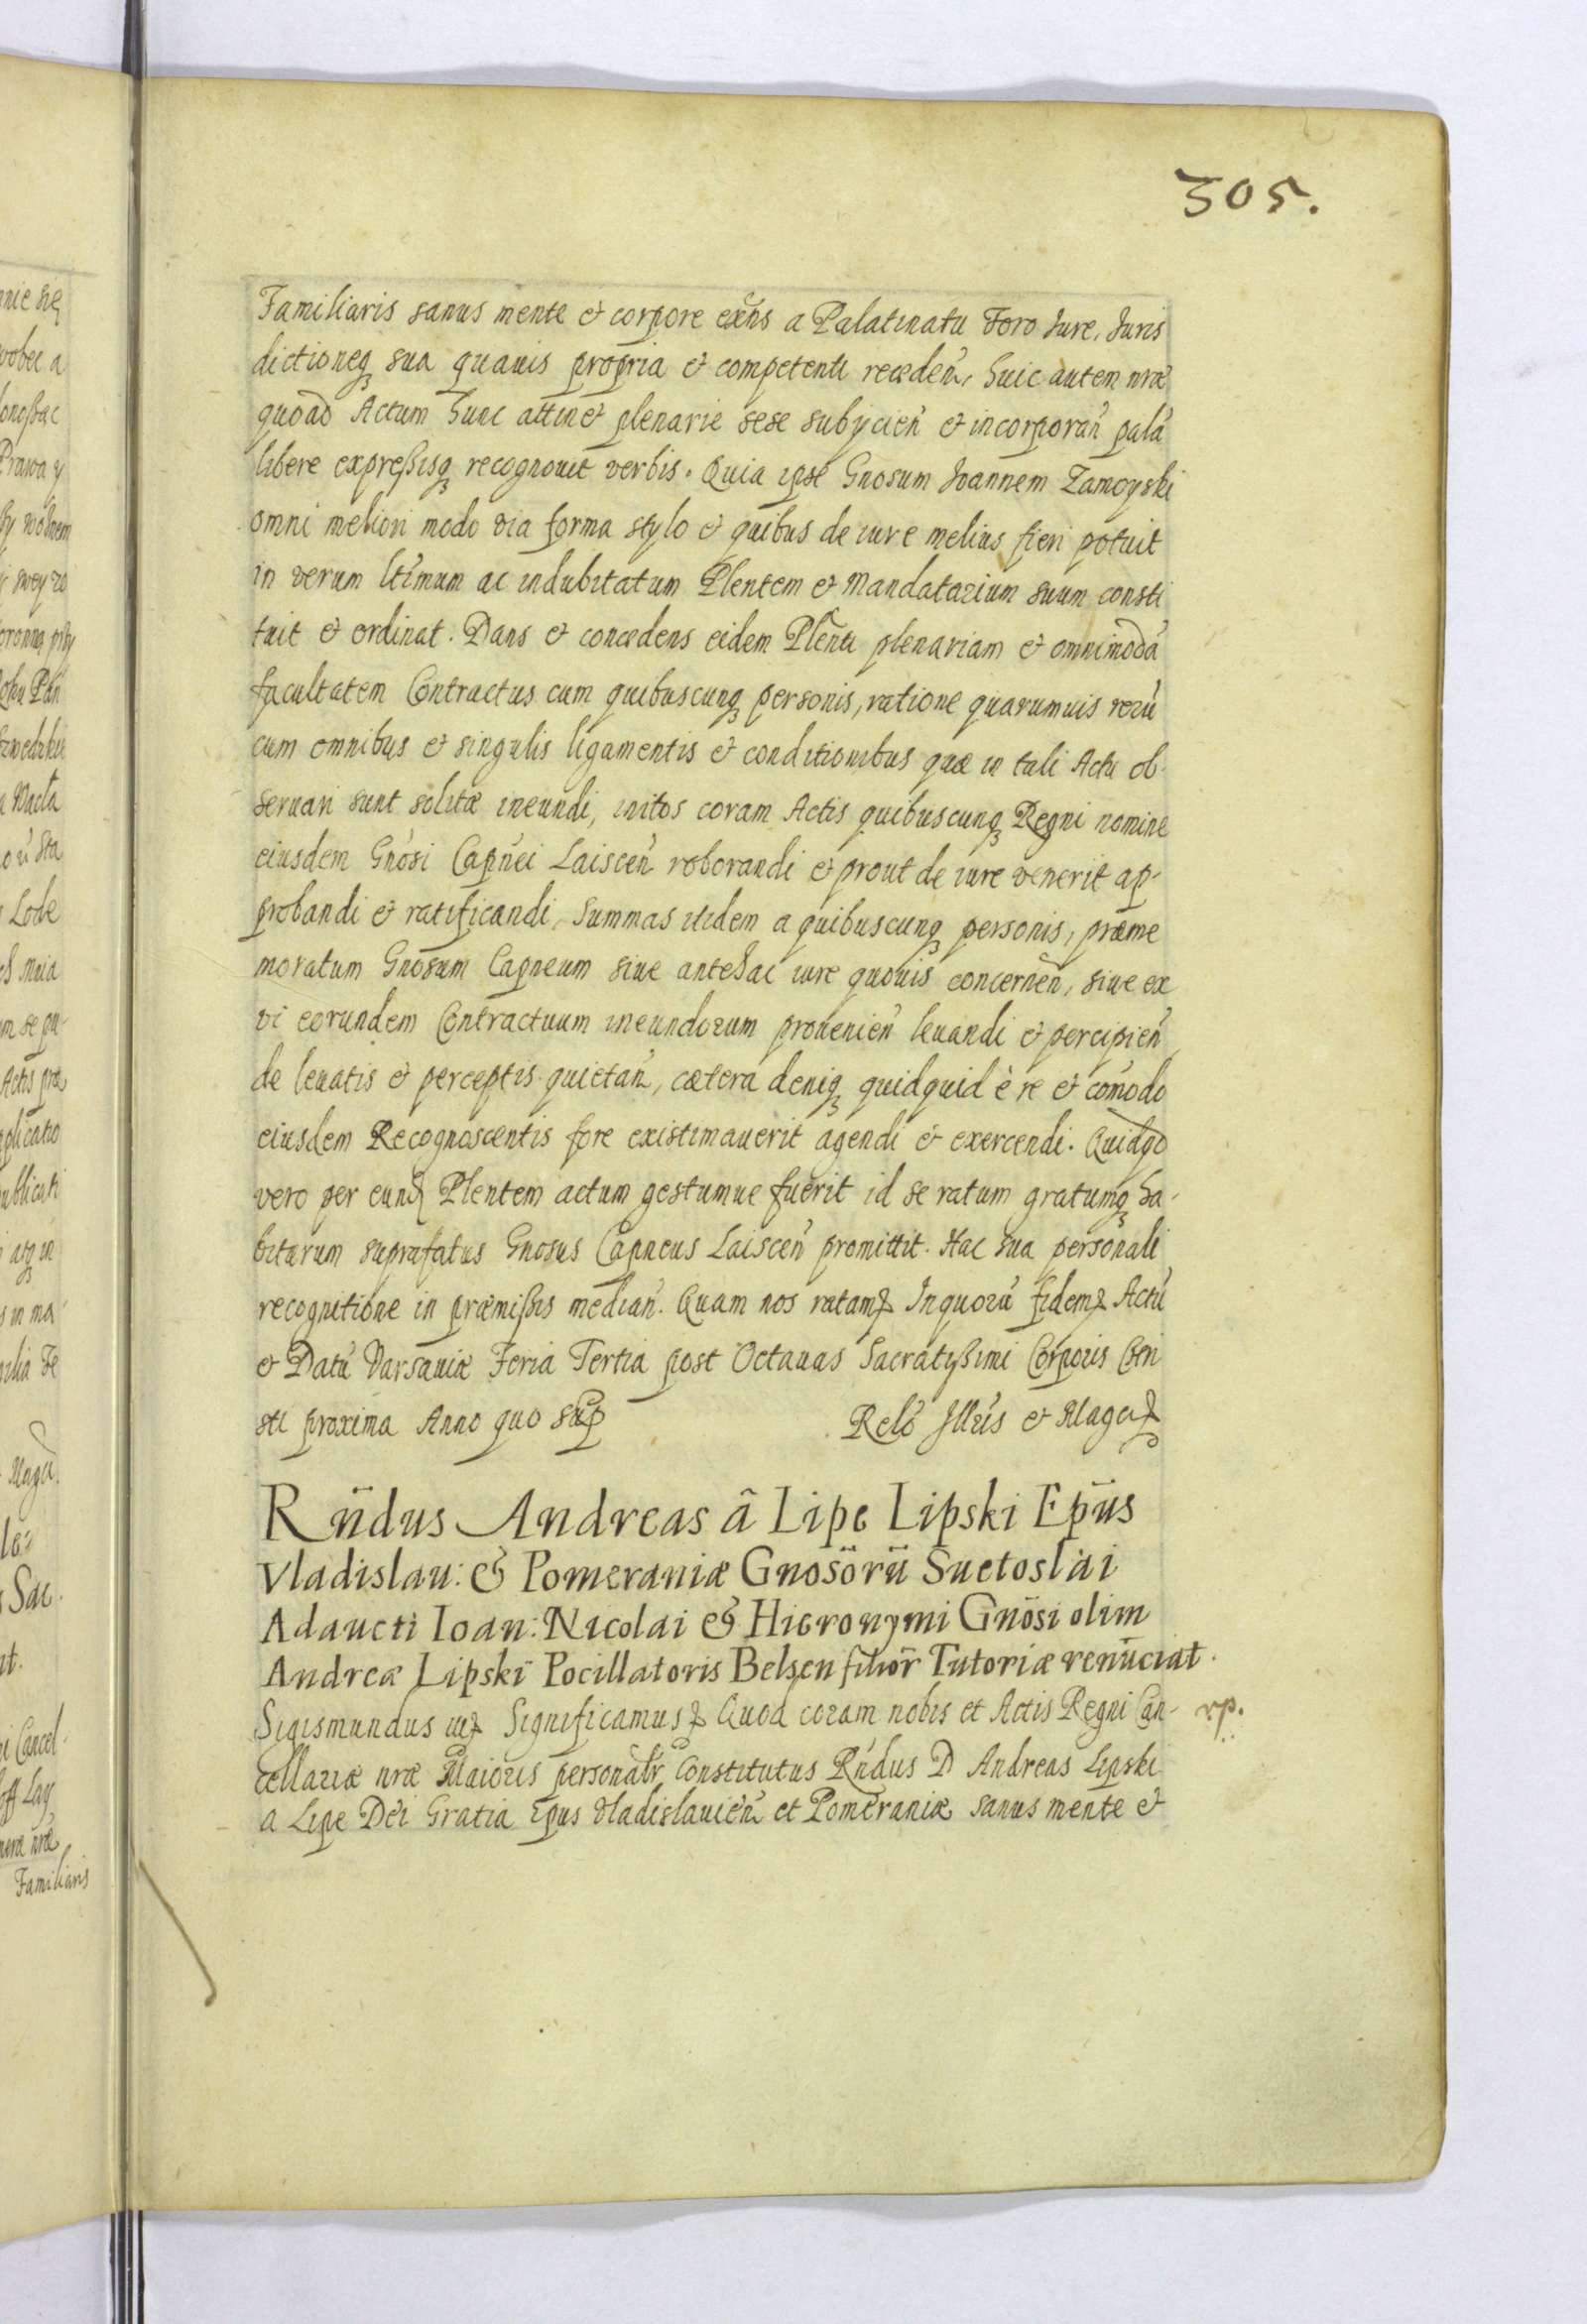 305.
Familiaris sanus mente et corpore exñs a Palatinatu Foro Iure, Iuris
dictioneq sua quauis propria et competenti receden̄, huic autem nræ
quoad Actum hunc attinet plenarie sese subÿcien̄ et incorporan̄ palā
libere expreßisq recognouit verbis. Quia ipse Gnosum Ioannem Zamoyski
omni meliori modo via forma stylo et quibus de iure melius fieri potuit
in verum ltīmum ac indubitatum Plentem et Mandatarium suum consti
tuit et ordinat. Dans et concedens eidem Plēnti plenariam et omnimodā
facultatem Contractus cum quibuscunq personis, ratione quarumuis rerū
cum omnibus et singulis ligamentis et conditionibus quæ in tali Actu ob-
seruari sunt solitæ ineundi, initos coram Actis quibuscunq Regni nomine
eiusdem Gnōsi Capn̄ei Laiscen̄ roborandi et prout de iure venerit ap-
probandi et ratificandi, Summas itidem a quibuscunq personis, præme
moratum Gnosum Capneum siue antehac iure quouis concernēn, siue ex
vi eorundem Contractuum ineundorum prouenien̄ leuandi et percipien̄
de leuatis et perceptis quietan̄, cætera deniq quidquid è re et com̄odo
eiusdem Recognoscentis fore existimauerit agendi et exercendi. Quidqd
vero per eund Plentem actum gestumue fuerit id se ratum gratumq ha-
biturum suprafatus Gnosus Capneus Laiscen̄ promittit. Hac sua personali
recognitione in præmißis median̄. Quam nos ratam Inquorū fidem Actū
et Datū Varsauiæ Feria Tertia post Octauas Sacratyßimi Corporis Chri
sti proxima Anno quo sup Relō Jllris et Magci
Rn̄dus Andreas â Lipe Lipski Epūs
Vladislau: et Pomeraniæ Gnosōrū Suetoslai
Adaucti Ioan: Nicolai et Hieronymi Gnōsi olim
Andreæ Lipski Pocillatoris Belsen filiōr Tutoriæ renūciat.
Sigismundus iij Significamus Quod coram nobis et Actis Regni Can-
rp.
cellariæ nræ Maioris personalr Constitutus Rn̄dus D Andreas Lipski
a Lipe Dei Gratia Epus Vladislauien̄ et Pomeraniæ sanus mente et